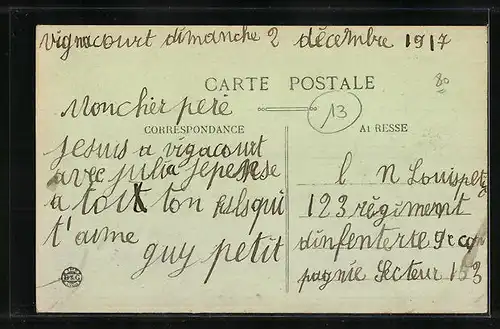 vignacourt dimanche 2 décembre 1917
80
CARTE POSTALE
13
Moncher pere
CORRESPONDANCE
ADRESSE
Jesuis a vigacourt
avec julia jepense
a toi ton fils qui
t'aime
guy petit
Louis petit
123 régiment
dinfenterie 9e com
pagnie Secteur 153